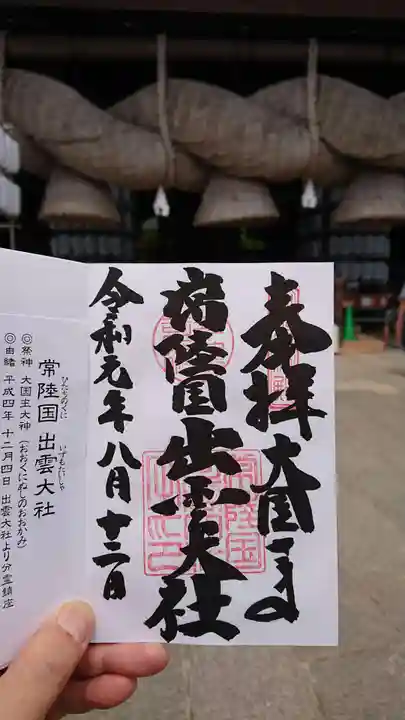 奉拝 大国主の
常陸国出雲大社
令和元年八月十三日
常陸国出雲大社
ひたちのくに いずもたいしゃ
◎祭神 大国主大神（おおくにぬしのおおかみ）
◎由緒 平成四年 十二月四日 出雲大社より分霊鎮座